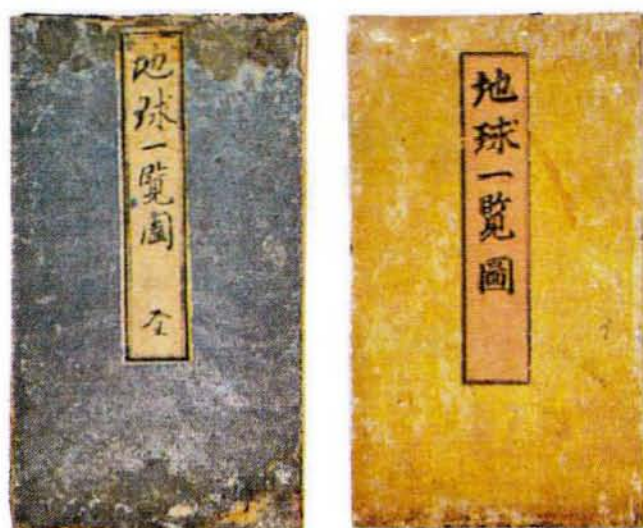 地球一覧圖 全
地球一覧圖